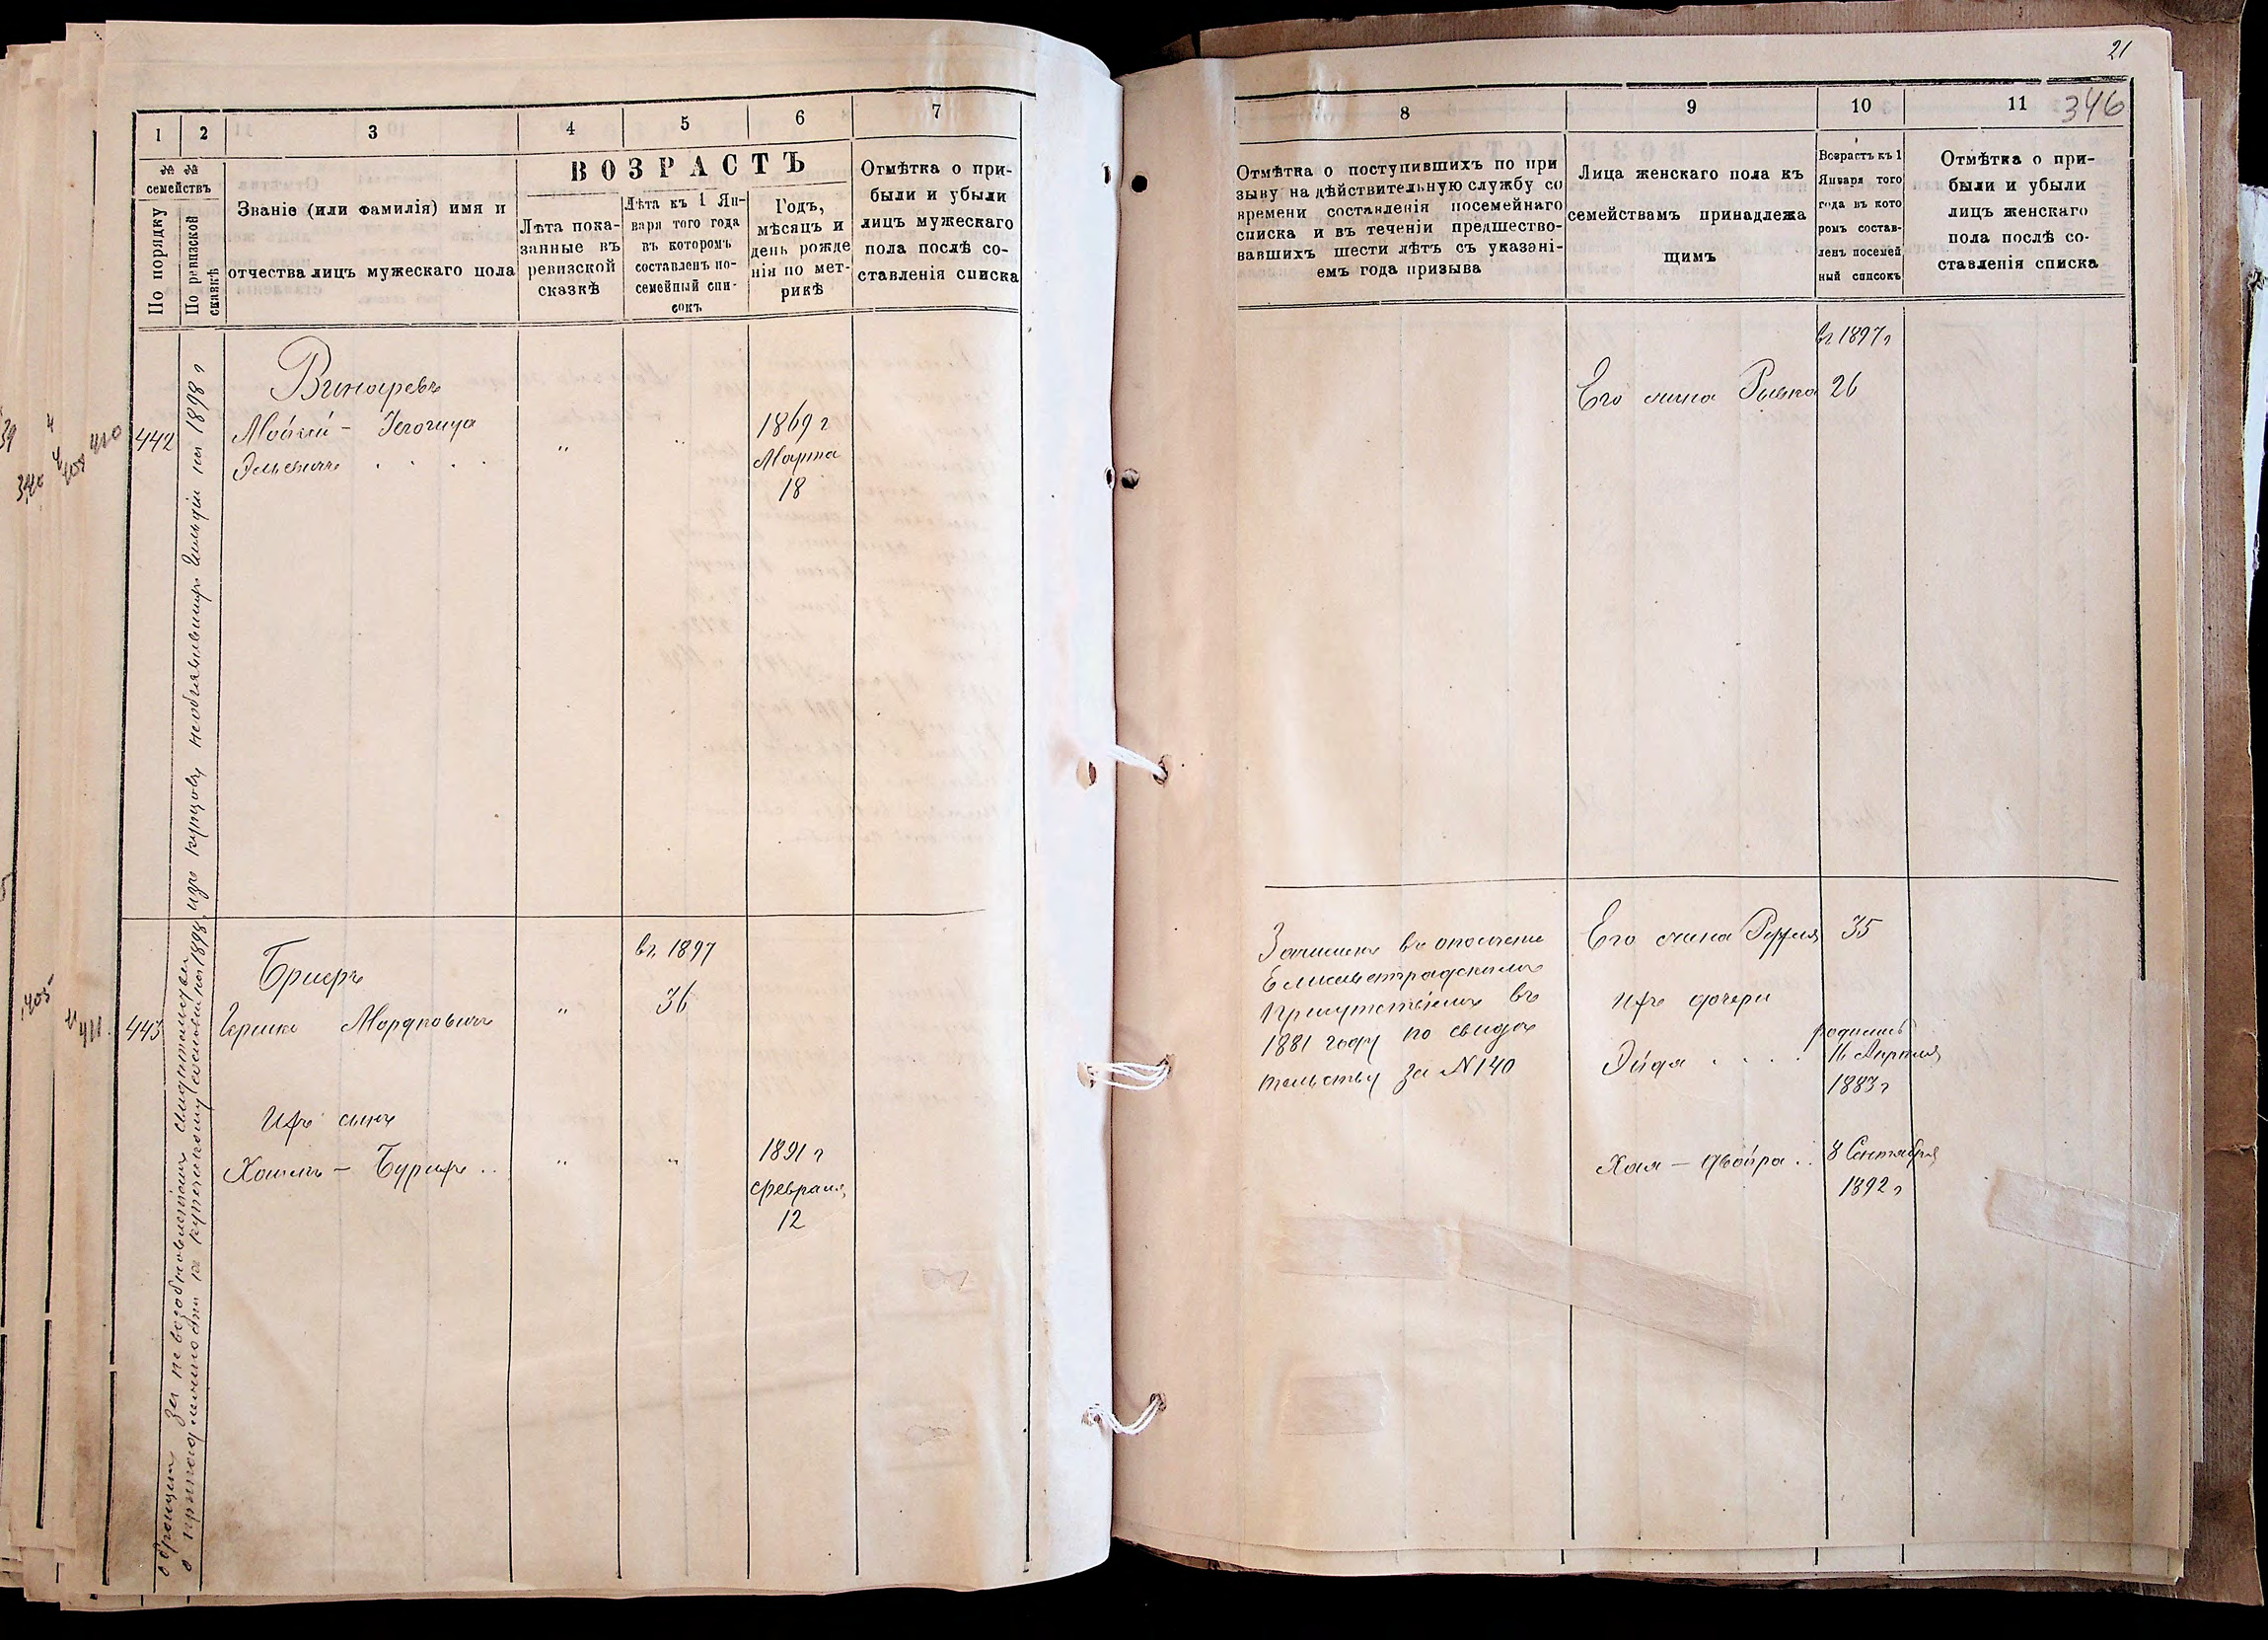 1
2
3
4
5
6
7
№ №
семействъ
По порядку
По ревизской
сказкѣ
Званіе (или фамилія) имя и
отчества лицъ мужескаго пола
ВОЗРАСТЪ
Лѣта пока-
занные въ
ревизской
сказкѣ
Лѣта къ 1 Ян-
варя того года
въ которомъ
составленъ по-
семейный спи-
сокъ
Годъ,
мѣсяцъ и
день рожде
нія по мет-
рикѣ
Отмѣтка о при-
были и убыли
лицъ мужескаго
пола послѣ со-
ставленія списка
442
Мовшй -
Эльевичъ . . . .
„
„
1869 г
Марта
18
изъ купцовъ необъявившихъ Гильдіи на 1898 г
443
411
Бриеръ
Гершко Мордковичъ
„
въ 1897
36
Ихъ сынъ
Хаимъ - Бурихъ . .
„
„
1891 г
Февраля
12
21
346
8
9
10
11
Отмѣтка о поступившихъ по при
зыву на дѣйствительную службу со
времени составленія посемейнаго
списка и въ теченіи предшество-
вавшихъ шести лѣтъ съ указані-
емъ года призыва
Лица женскаго пола къ
семействамъ принадлежа
щимъ
Возрастъ къ 1
Января того
года въ кото
ромъ состав-
ленъ посемей
ный списокъ
Отмѣтка о при-
были и убыли
лицъ женскаго
пола послѣ со-
ставленія списка
въ 1897 г
Его жена Ривка 26
Зачисленъ въ ополченіе
Елисаветградскимъ
Присутствіемъ въ
1881 году по свидѣ
тельству за N 140
Его жена 35
Ихъ дочери
родилась
Эйдя . . . . 16 Апрѣля
1883 г
Хая - Двойра . . 8 Сентября
1892 г